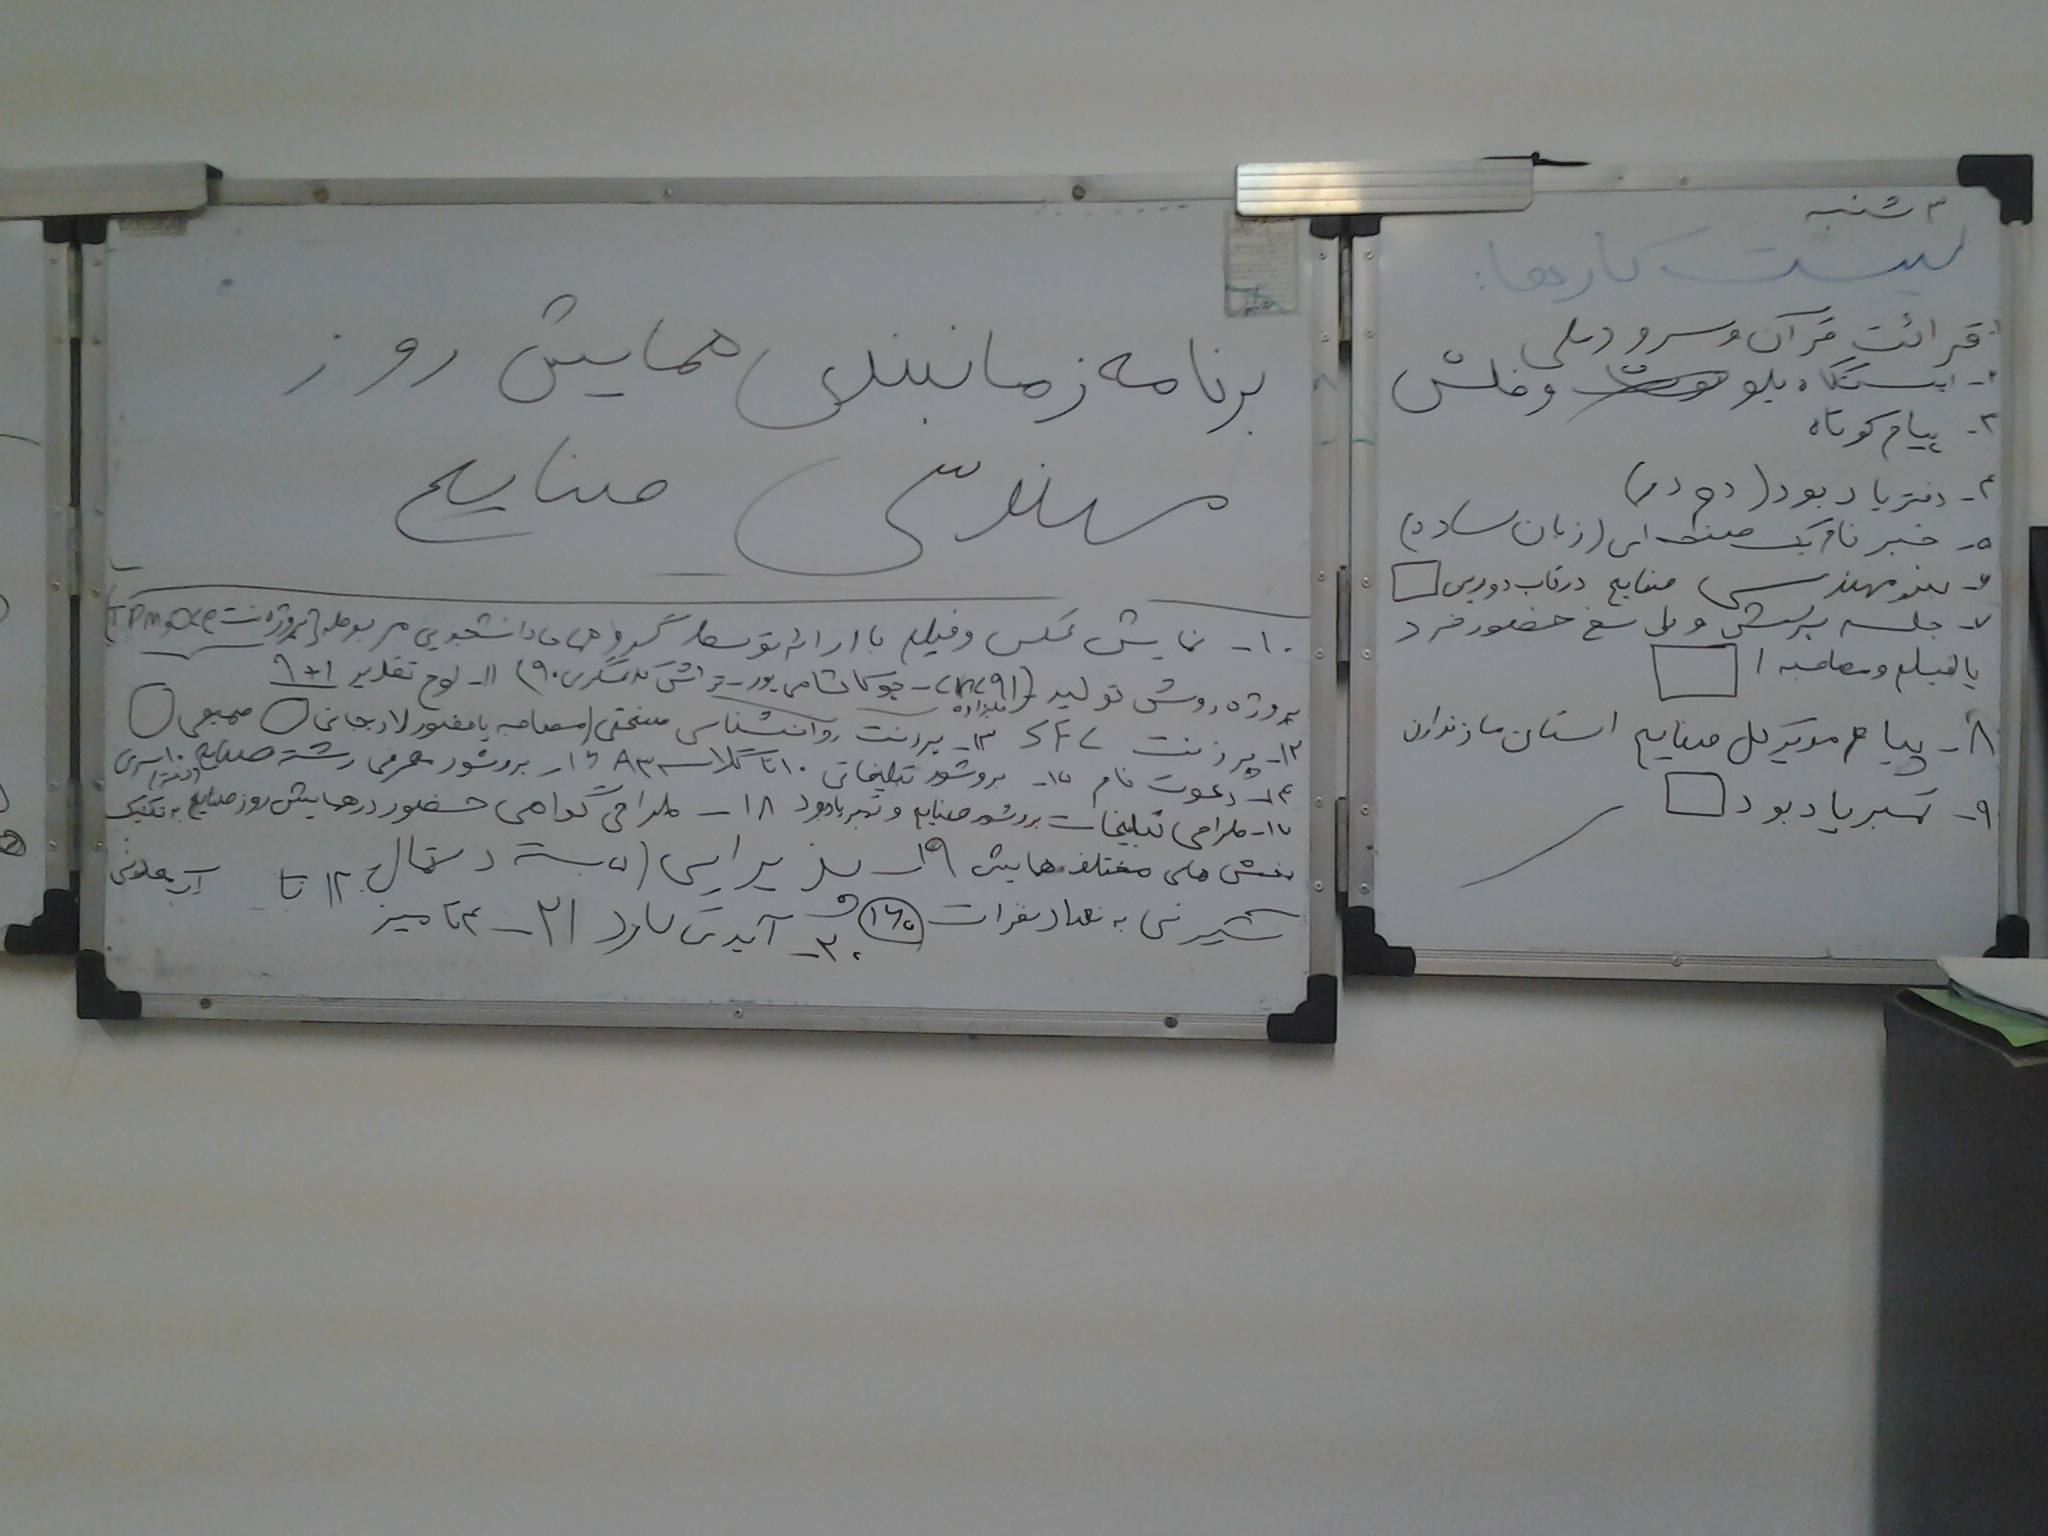 ۳ شنبه
لیست کارها:
۱- قرائت قرآن و سرود ملی
۲- ایستگاه بلوتوث و فلش
۳- پیام کوتاه
۴- دفتر یادبود (دو در)
۵- خبرنامه یک صفحه ای (زبان ساده)
۶- بنر مهندسی صنایع در قاب دوربین
۷- جلسه پرسش و پاسخ حضور فرد
یا فیلم و مصاحبه
۸- پیام مدیرکل صنایع استان مازندران
۹- تمبر یادبود
برنامه زمانبندی همایش روز
مهندسی صنایع
۱۰- نمایش عکس و فیلم با ارائه توسط گروه های دانشجویی مربوطه (پروژه نت TPM
پروژه روش تولید ۱۱- لوح تقدیر ۱+۶
۱۲- پرزنت SFL ۱۳- پرزنت روانشناسی صنعتی (مصاحبه با منصور لاریجانی
۱۴- دعوت نامه ۱۵- بروشور تبلیغاتی ۱۰ تا گلاسه A3 ۱۶- بروشور معرفی رشته صنایع ۱۰ سری
۱۷- طراحی تبلیغات بروشور صنایع و تمبر یادبود ۱۸- طراحی گواهی حضور در همایش روز صنایع به تفکیک
بخش های مختلف همایش ۱۹- پذیرایی (۵ بسته دستمال ۱۲ تا آب معدنی
شیرینی به تعداد نفرات ۱۶۵ ۲۰- آیدی کارت ۲۱- ۴ تا میز